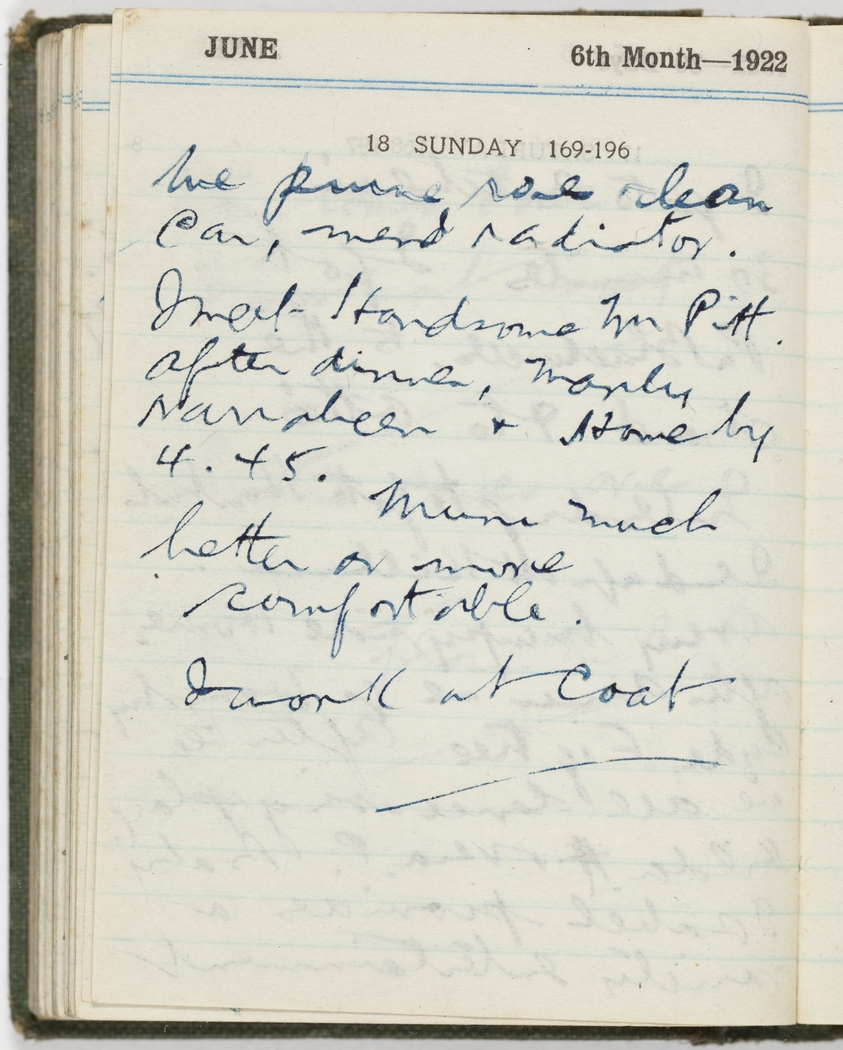 JUNE 6th Month—1922
18 SUNDAY 169-196
We prune rose clean
Car, mend radiator.
I meet Handsome Mr Pitt.
after dinner, Manly
Narrabeen + Home by
4.45.
Mum much
better or more
comfortable.
I work at Coat